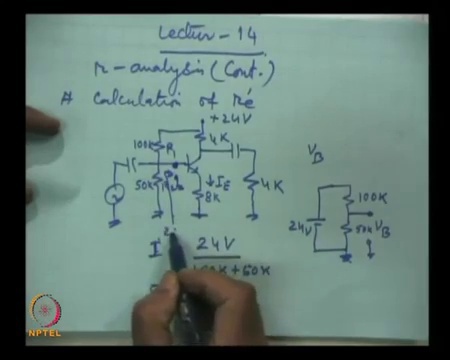 Lectur-14
r-analysis (Cont.)
# Calculation of re'
+24V
100K R1
4K
50K
IE
8K
4K
VB
100K
24V
50K VB
I 24V
100K+50K
NPTEL